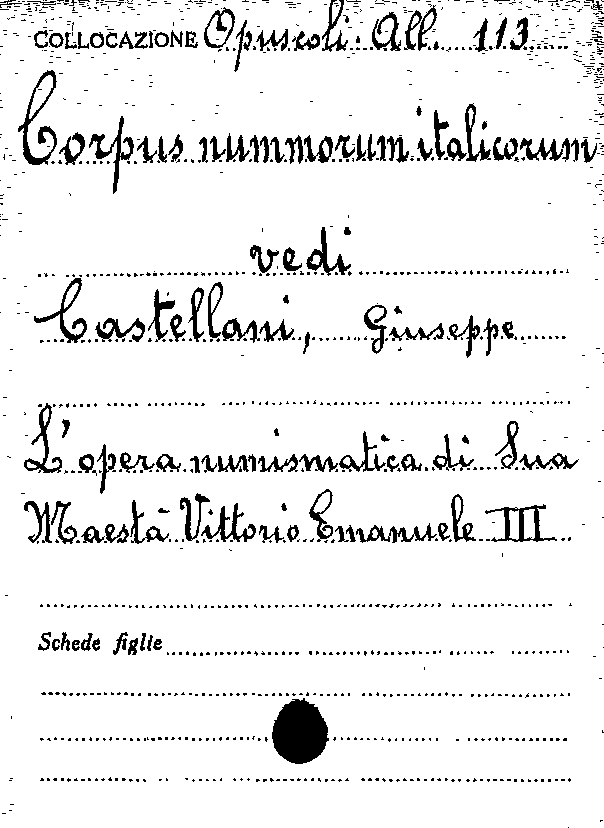 COLLOCAZIONE Opuscoli. All. 113
Corpus nummorum italicorum
vedi
Castellani, Giuseppe
L'opera numismatica di Sua
Maestà Vittorio Emanuele III
Schede figlie